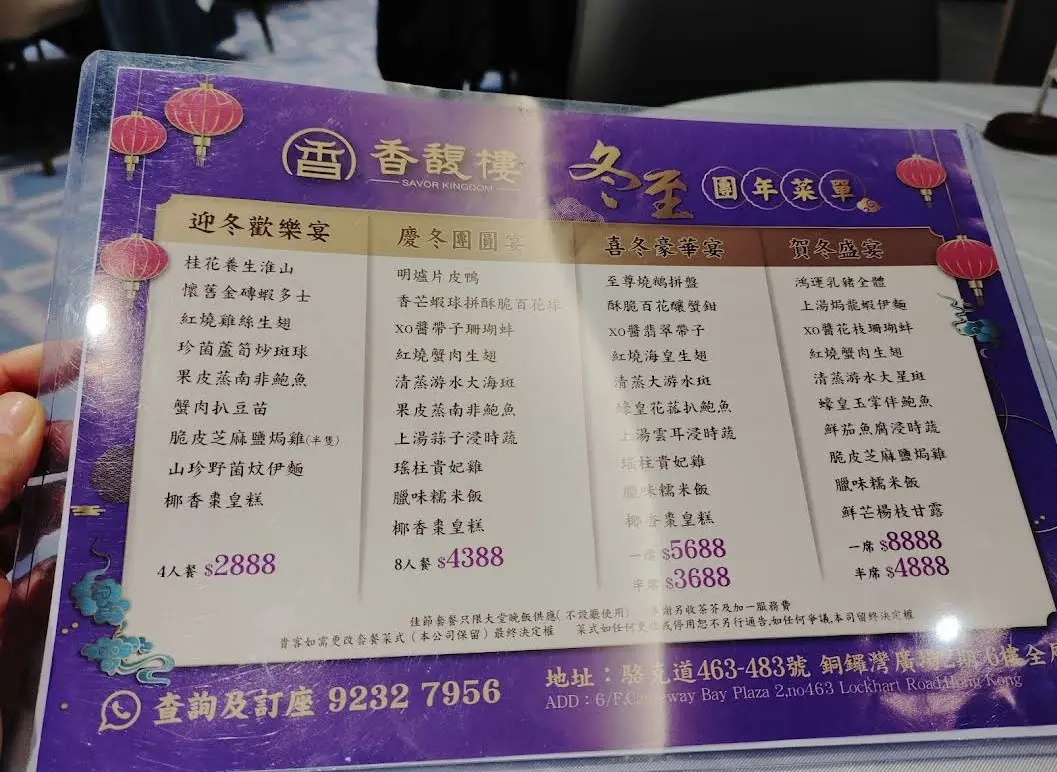 香 香馥樓
SAVOR KINGDOM
冬至 團年菜單
迎冬歡樂宴
桂花養生淮山
懷舊金磚蝦多士
紅燒雞絲生翅
珍菌蘆筍炒斑球
果皮蒸南非鮑魚
蟹肉扒豆苗
脆皮芝麻鹽焗雞(半隻)
山珍野菌炆伊麵
椰香棗皇糕
4人餐 $2888
慶冬團圓宴
明爐片皮鴨
香芒蝦球拼酥脆百花球
XO醬帶子珊瑚蚌
紅燒蟹肉生翅
清蒸游水大海斑
果皮蒸南非鮑魚
上湯蒜子浸時蔬
瑤柱貴妃雞
臘味糯米飯
椰香棗皇糕
8人餐 $4388
喜冬豪華宴
至尊燒鵝拼盤
酥脆百花釀蟹鉗
XO醬翡翠帶子
紅燒海皇生翅
清蒸大游水斑
蠔皇花菇扒鮑魚
上湯雲耳浸時蔬
瑤柱貴妃雞
臘味糯米飯
椰香棗皇糕
一席 $5688
半席 $3688
賀冬盛宴
鴻運乳豬全體
上湯焗龍蝦伊麵
XO醬花枝珊瑚蚌
紅燒蟹肉生翅
清蒸游水大星斑
蠔皇玉掌伴鮑魚
鮮茄魚腐浸時蔬
脆皮芝麻鹽焗雞
臘味糯米飯
鮮芒楊枝甘露
一席 $8888
半席 $4888
佳節套餐只限大堂晚飯供應(不設廳使用) 謝另收茶芥及加一服務費
貴客如需更改套餐菜式(本公司保留)最終決定權 菜式如任何更改或停用恕不另行通告,如任何爭議,本司留終決定權
查詢及訂座 9232 7956
地址：駱克道463-483號 銅鑼灣廣場2期 6樓全層
ADD：6/F,Causeway Bay Plaza 2,no463 Lockhart Road,Hong Kong